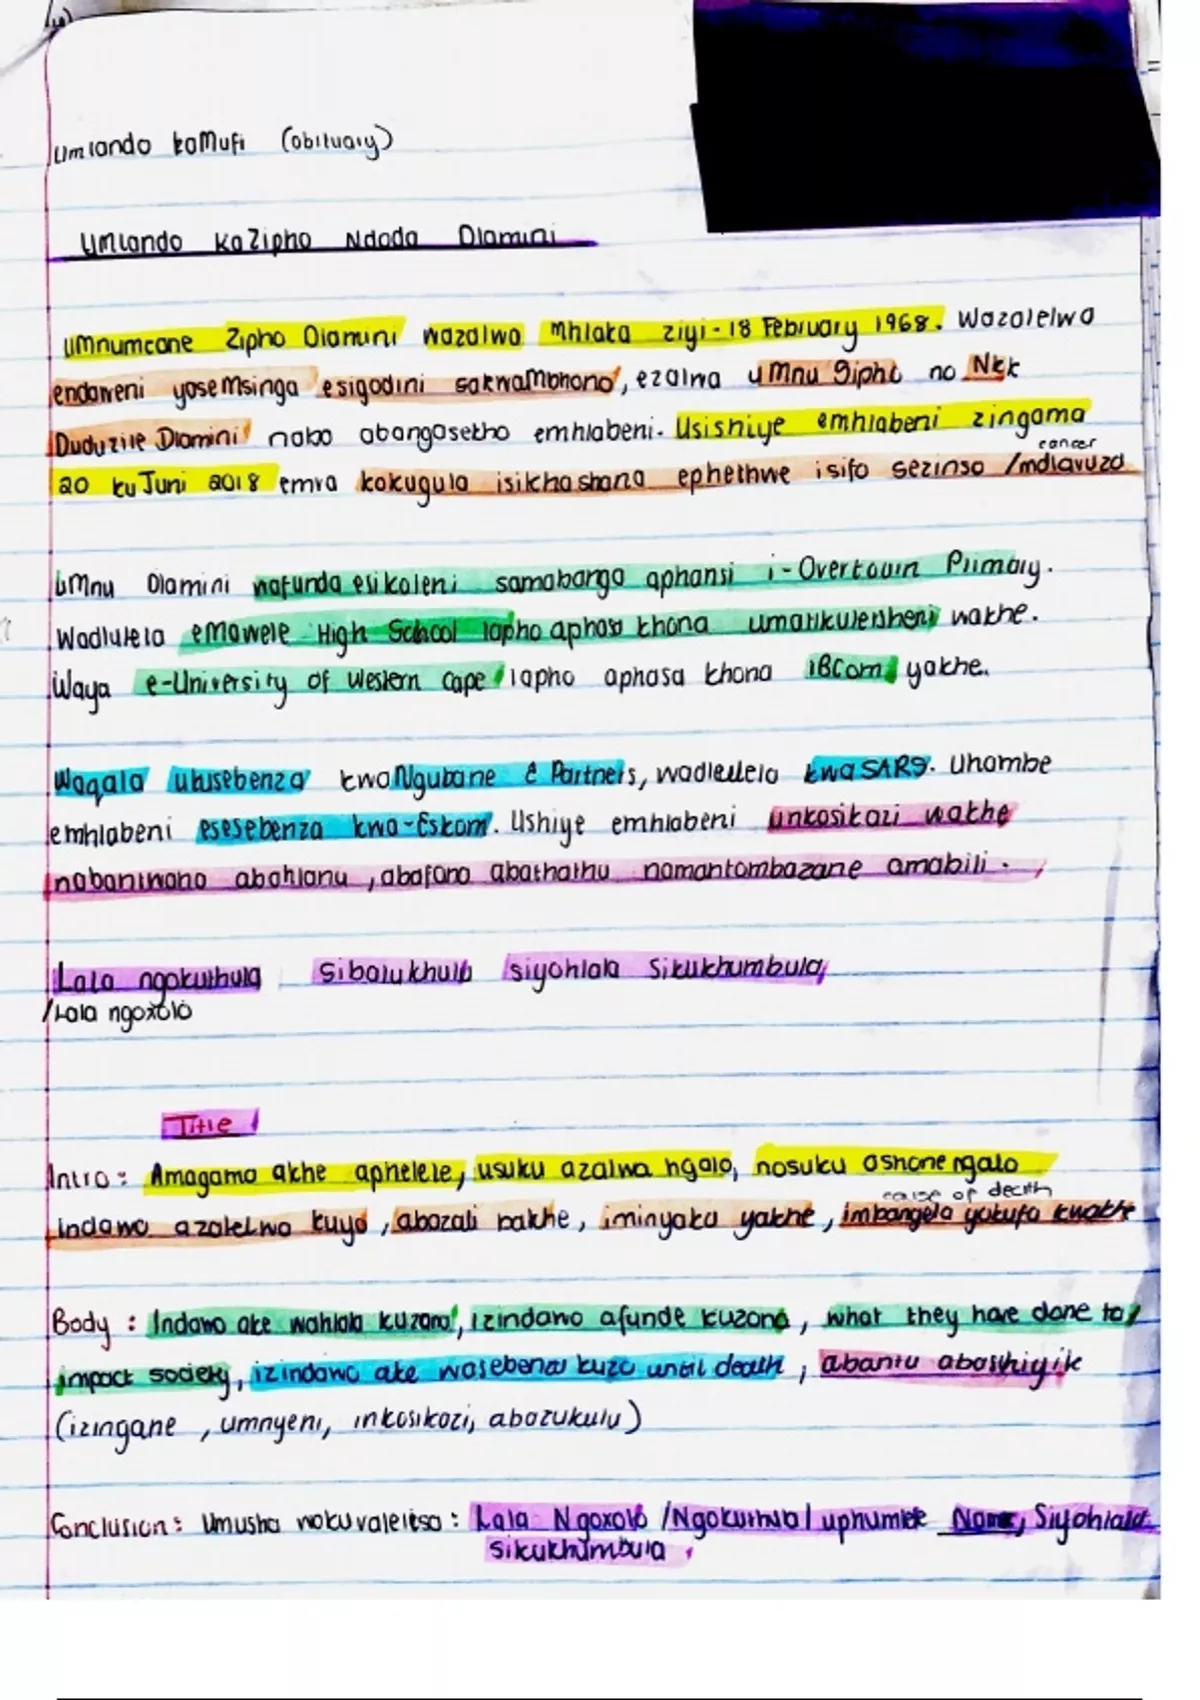 Umlando kaMufi (obituary)
Umlando KaZipho Ndoda Dlamini
UMnumcane Zipho Dlamini wazalwa Mhlaka ziyi-18 February 1968. Wazalelwa
endaweni yaseMsinga esigodini sakwaMbhono, ezalwa uMnu Sipho no Nkk
Duduzile Dlamini nabo abangasetho emhlabeni. Usishiye emhlabeni zingama
cancer
20 kuJuni 2018 emva kokugula isikhashana ephethwe isifo sezinso /mdlavuza
UMnu Dlamini wafunda esikoleni samabanga aphansi i-Overtouin Primary.
Wadlulela eMawele High School lapho aphasa khona umatikuletsheni wakhe.
Waya e-University of Western Cape lapho aphasa khona iBCom yakhe.
Waqala ukusebenza kwaNgubane & Partners, wadlulela kwaSARS. Uhambe
emhlabeni esesebenza kwa-Eskom. Ushiye emhlabeni unkosikazi wakhe
nabantwana abahlanu, abafana abathathu namantombazane amabili.
Lala ngokuthula Sibalukhulu siyohlala Sikukhumbula
/Lala ngoxolo
Title
Intro: Amagama akhe aphelele, usuku azalwa ngalo, nosuku ashone ngalo
cause of death
indawo azalelwa kuyo, abazali bakhe, iminyaka yakhe, imbangela yokufa kwakhe
Body: Indawo ake wahlala kuzona, izindawo afunde kuzona, what they have done to/
impact society, izindawo ake wasebenza kuzo until death, abantu abashiyile
(izingane, umnyeni, inkosikazi, abazukulu)
Conclusion: Umusho wokuvalelisa: Lala Ngoxolo /Ngokuthula/ uphumule Name, Siyohlala
sikukhumbula